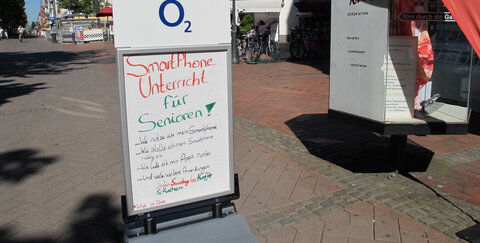 O2
SmartPhone
Unterricht
für
Senioren!
- Wie nutze ich mein Smartphone
- Wie stelle ich mein Smartphone
richtig ein
- Wie lade ich mir Apps runter
- Und viele weitere Anwendungen
Jeden Samstag bei Kaffee
& Kuchen
DEKORATION
O2